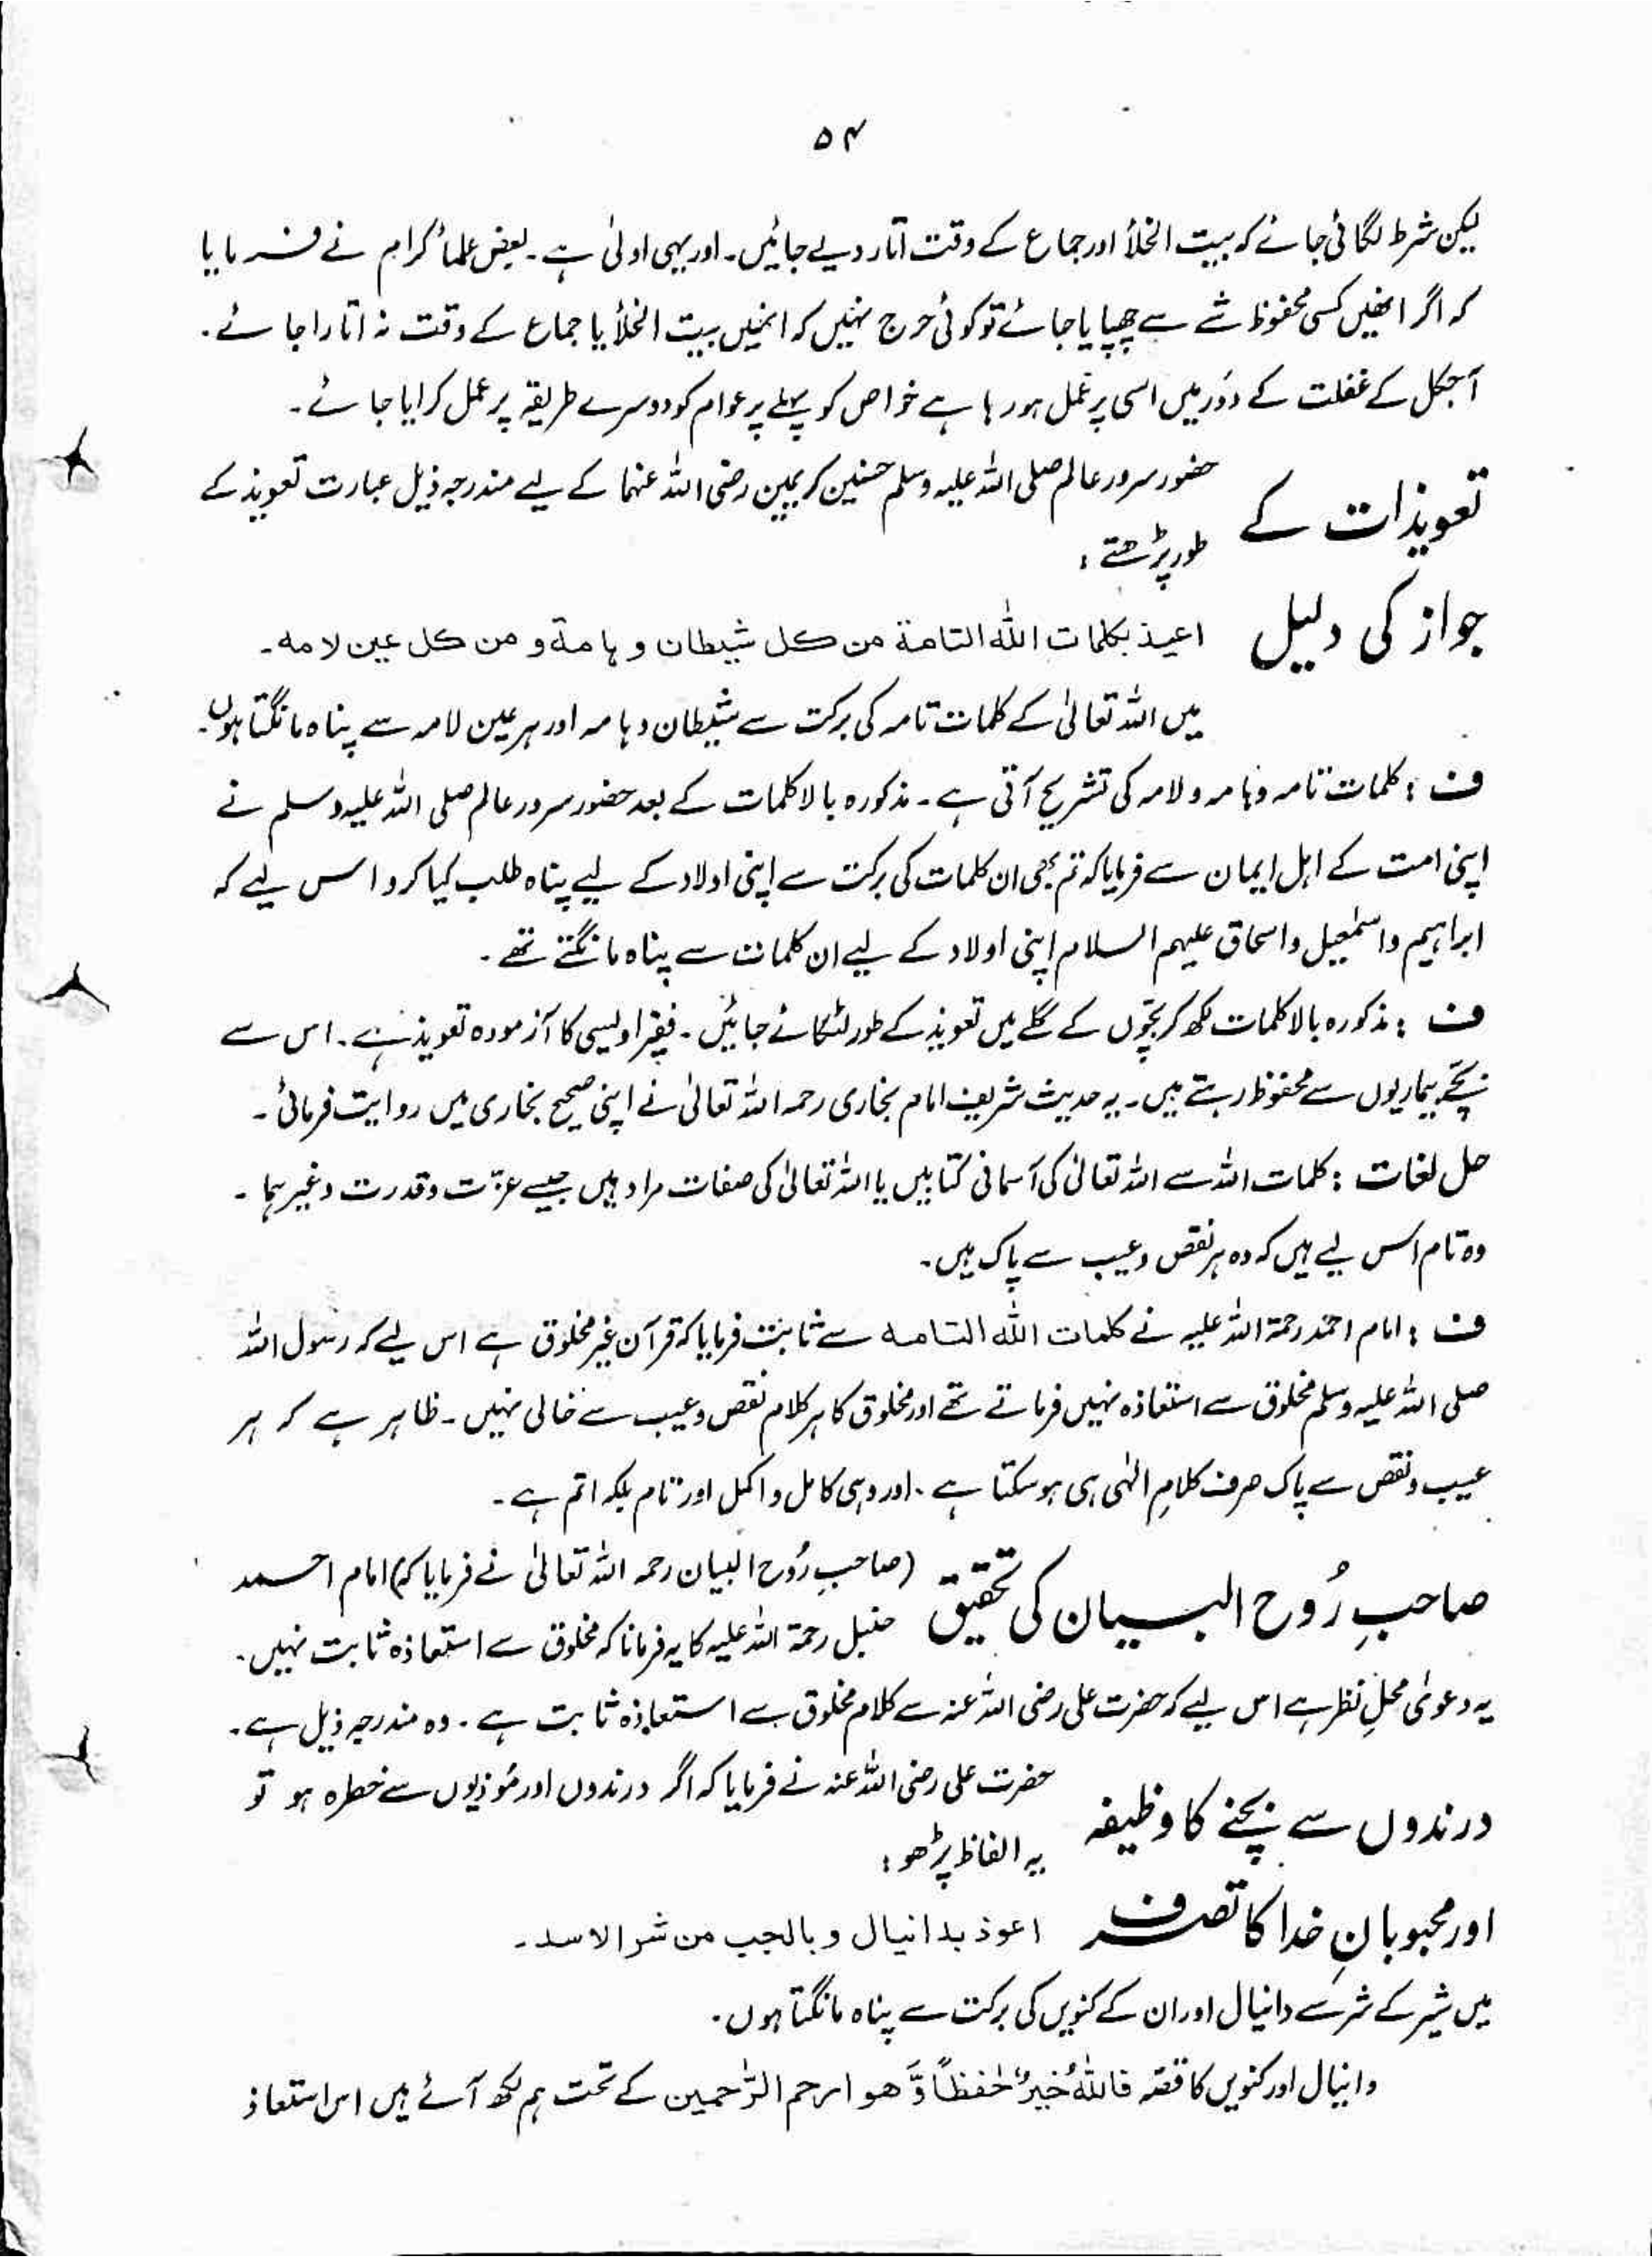 ۵۴
لیکن شرط لگائی جائے کہ بیت الخلأ اور جماع کے وقت اتار دیے جائیں۔ اور یہی اولیٰ ہے۔ بعض علمأ کرام نے فرمایا
کہ اگر انھیں کسی محفوظ شے سے چھپایا جائے تو کوئی حرج نہیں کہ انھیں بیت الخلأ یا جماع کے وقت نہ اتارا جائے۔
آجکل کے غفلت کے دَور میں اسی پر عمل ہو رہا ہے خواص کو پہلے پر عوام کو دوسرے طریقہ پر عمل کرایا جائے۔
تعویذات کے
حضور سرور عالم صلی اللہ علیہ وسلم حسنین کریمین رضی اللہ عنہما کے لیے مندرجہ ذیل عبارت تعویذ کے
طور پڑھتے :
جواز کی دلیل
اعیذ بکلمات اللہ التامۃ من کل شیطان و ہامۃ و من کل عین لامہ۔
میں اللہ تعالیٰ کے کلمات تامہ کی برکت سے شیطان و ہامہ اور ہر عین لامہ سے پناہ مانگتا ہوں۔
ف : کلمات تامہ و ہامہ و لامہ کی تشریح آتی ہے۔ مذکورہ بالا کلمات کے بعد حضور سرور عالم صلی اللہ علیہ وسلم نے
اپنی امت کے اہل ایمان سے فرمایا کہ تم بھی ان کلمات کی برکت سے اپنی اولاد کے لیے پناہ طلب کیا کرو اس لیے کہ
ابراہیم و اسمٰعیل و اسحاق علیہم السلام اپنی اولاد کے لیے ان کلمات سے پناہ مانگتے تھے۔
ف : مذکورہ بالا کلمات لکھ کر بچّوں کے گلے میں تعویذ کے طور لٹکائے جائیں۔ فقیر اویسی کا آزمودہ تعویذ ہے۔ اس سے
بچّے بیماریوں سے محفوظ رہتے ہیں۔ یہ حدیث شریف امام بخاری رحمہ اللہ تعالیٰ نے اپنی صحیح بخاری میں روایت فرمائی۔
حل لغات : کلمات اللہ سے اللہ تعالیٰ کی آسمانی کتابیں یا اللہ تعالیٰ کی صفات مراد ہیں جیسے عزّت و قدرت و غیرہما۔
وہ تام اس لیے ہیں کہ وہ ہر نقص و عیب سے پاک ہیں۔
ف : امام احمد رحمۃ اللہ علیہ نے کلمات اللہ التامہ سے ثابت فرمایا کہ قرآن غیر مخلوق ہے اس لیے کہ رسول اللہ
صلی اللہ علیہ وسلم مخلوق سے استعاذہ نہیں فرماتے تھے اور مخلوق کا ہر کلام نقص و عیب سے خالی نہیں۔ ظاہر ہے کہ ہر
عیب و نقص سے پاک صرف کلامِ الٰہی ہی ہو سکتا ہے۔ اور وہی کامل و اکمل اور تام بلکہ اتم ہے۔
صاحبِ رُوح البیان کی تحقیق
(صاحبِ رُوح البیان رحمہ اللہ تعالیٰ نے فرمایا کہ) امام احمد
حنبل رحمۃ اللہ علیہ کا یہ فرمانا کہ مخلوق سے استعاذہ ثابت نہیں۔
یہ دعویٰ محلِ نظر ہے اس لیے کہ حضرت علی رضی اللہ عنہ سے کلام مخلوق سے استعاذہ ثابت ہے۔ وہ مندرجہ ذیل ہے۔
درندوں سے بچنے کا وظیفہ
حضرت علی رضی اللہ عنہ نے فرمایا کہ اگر درندوں اور مُوذیوں سے خطرہ ہو تو
یہ الفاظ پڑھو :
اور محبوبانِ خدا کا تصرف
اعوذ بدانیال و بالجب من شر الاسد۔
میں شیر کے شر سے دانیال اور ان کے کنویں کی برکت سے پناہ مانگتا ہوں۔
دانیال اور کنویں کا قصّہ فاللہُ خیرٌ حٰفظاً وَّ ھو ارحم الرّٰحمین کے تحت ہم لکھ آئے ہیں اس استعاذ